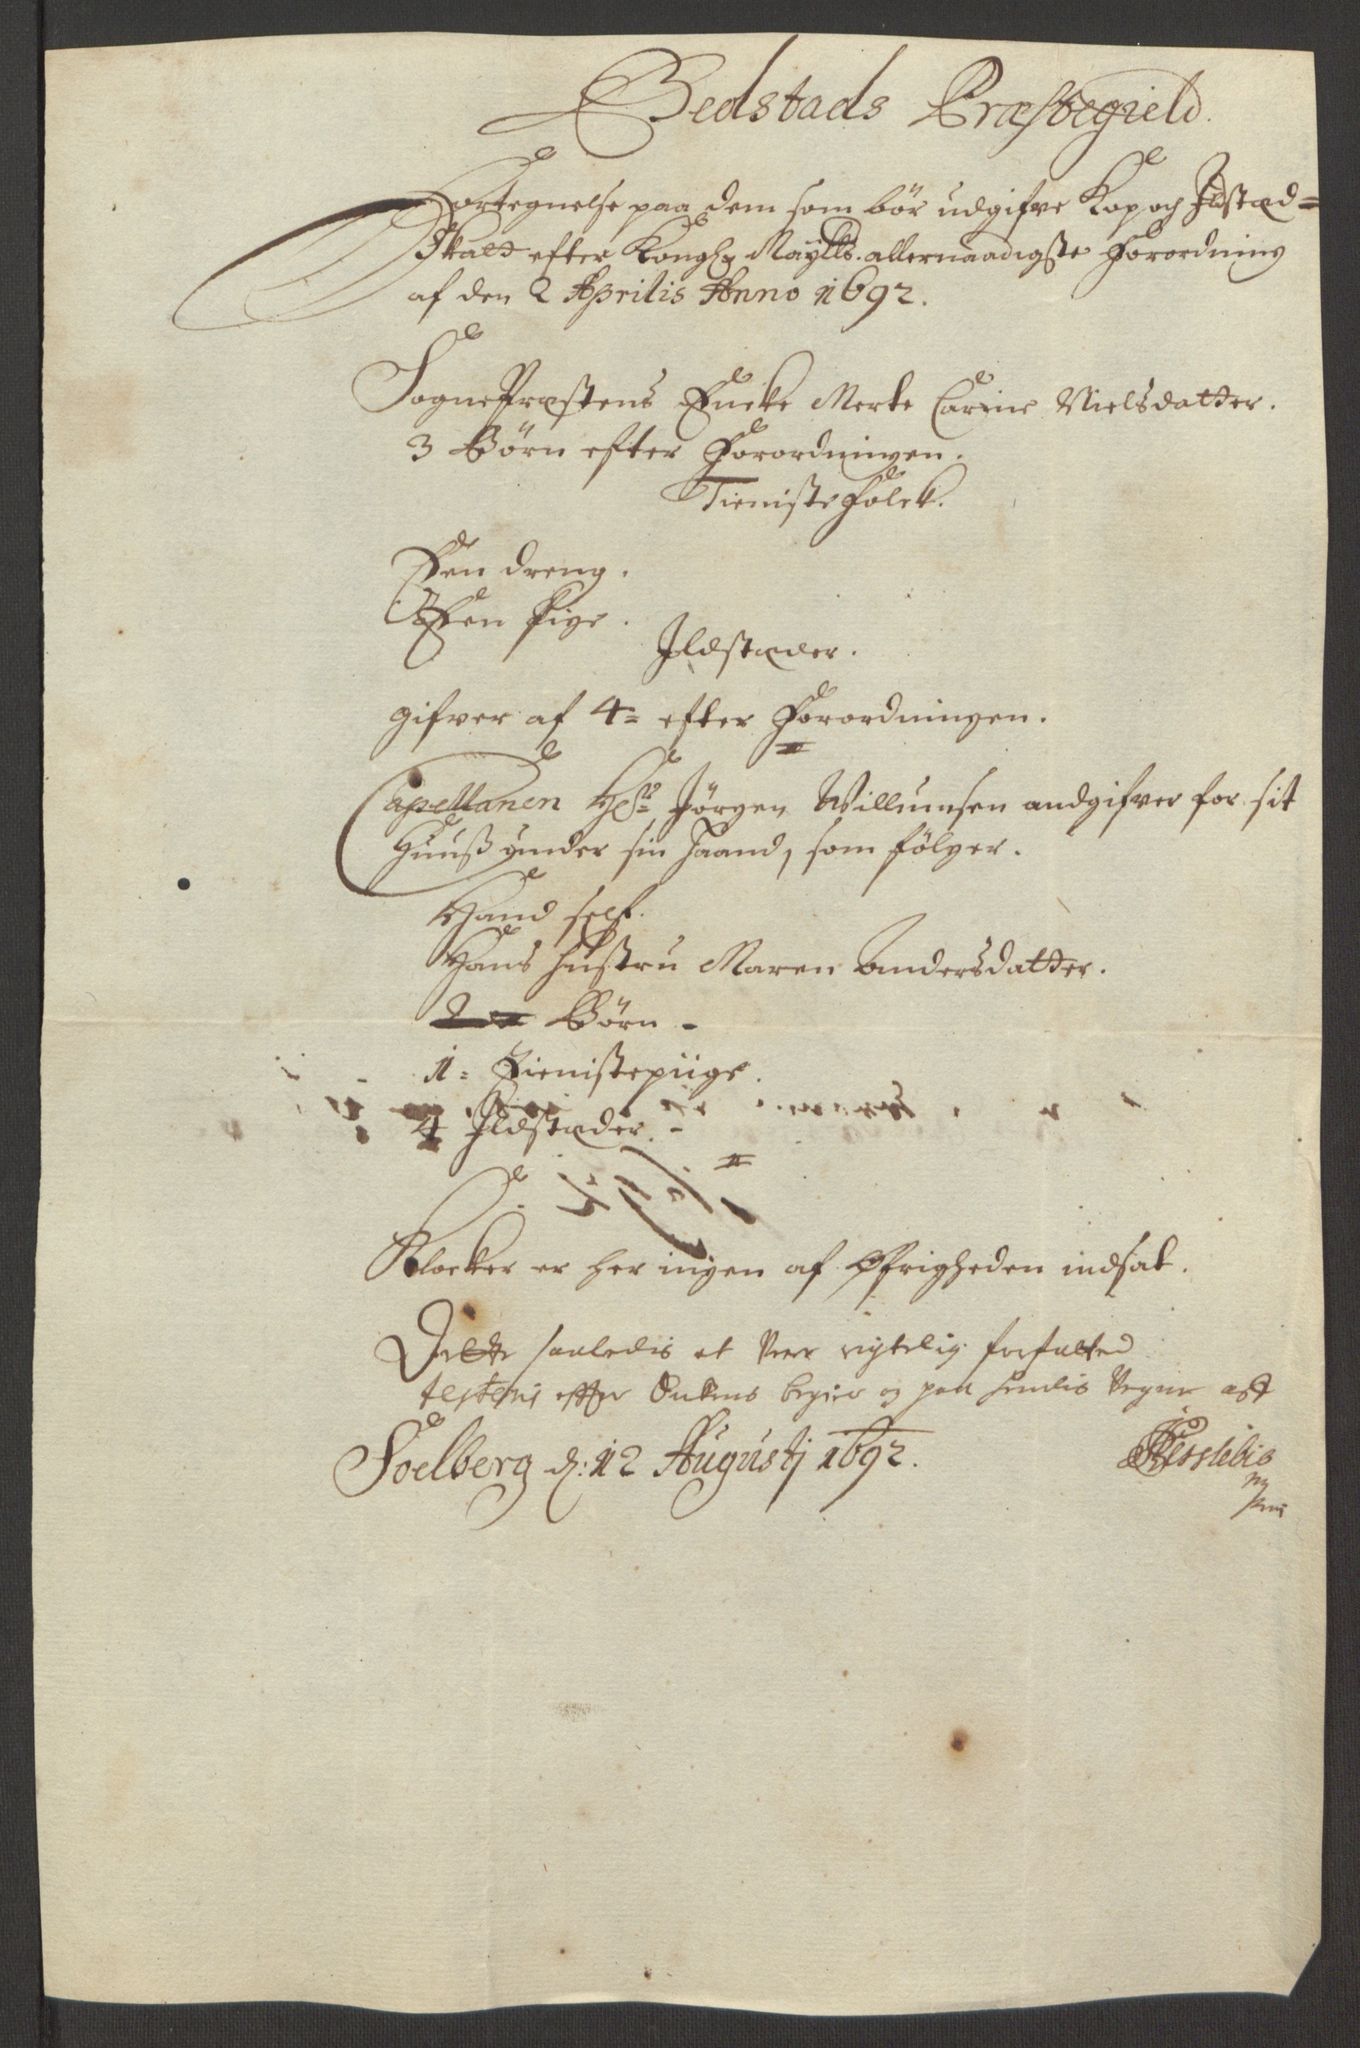 Bedstads Præstegield.
Fortegnelse paa dem som bör udgifve Kop og Ildstæd=
Skatt efter Kongl Maytts. allernaadigste Forordning
af den 2 Aprilis Anno 1692.
SognePræstens Encke Merte Carine Nielsdatter.
3 Börn efter Forordningen.
Tieniste Folck.
Een dreng.
Een Pige.
Ildstæder.
gifver af 4= efter Forordningen.
Capellanen Hr Jörgen Willumsen andgifver for sit
Huuß under sin Haand, som fölger.
Hand self.
Hans hustru Maren Andersdatter.
2 Börn -
1= Tienistepiige.
4 Ildstæder. -
Klocker er her ingen af Øfrigheden indsat.
Dette saaledis at Vere rigtelig forfatted
testeris effter Enkens begier og paa hendis Vegne aff
Soelberg d: 12 Augustj 1692.
mppria